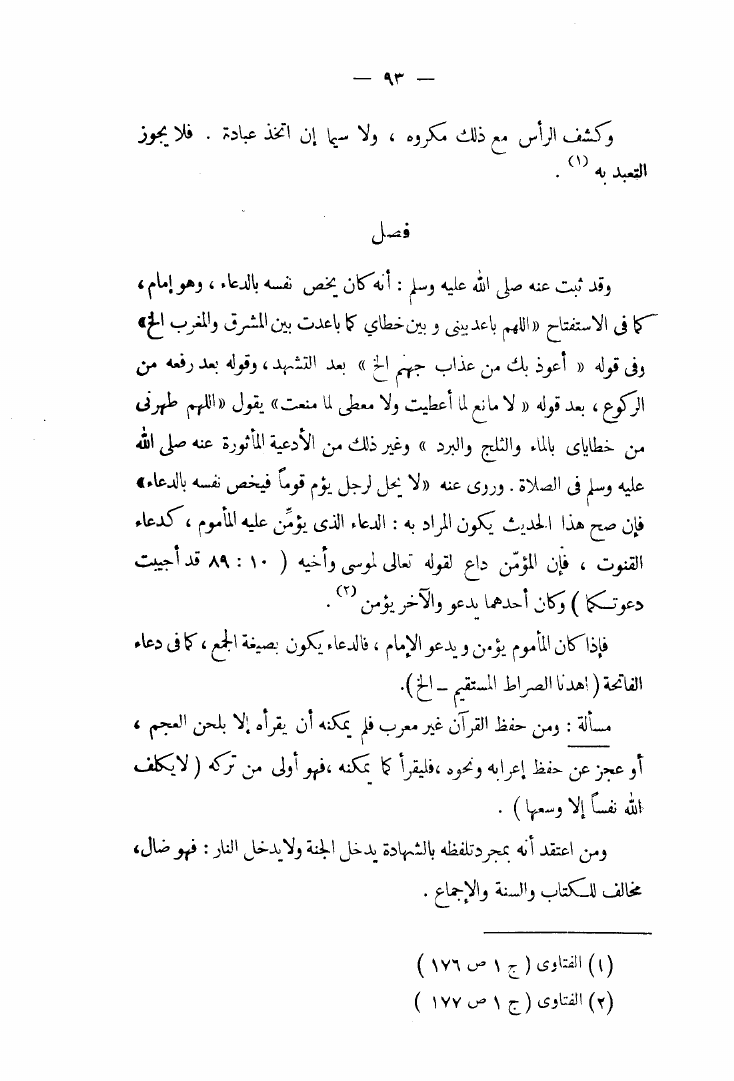 — ٩٣ —
وكشف الرأس مع ذلك مكروه ، ولا سيما إن اتخذ عبادة . فلا يجوز
التعبد به (١) .
فصل
وقد ثبت عنه صلى الله عليه وسلم : أنه كان يخص نفسه بالدعاء ، وهو إمام ،
كما فى الاستفتاح « اللهم باعد بينى و بين خطاي كما باعدت بين المشرق والمغرب الخ»
وفى قوله « أعوذ بك من عذاب جهنم الخ » بعد التشهد ، وقوله بعد رفعه من
الركوع ، بعد قوله « لا مانع لما أعطيت ولا معطى لما منعت» يقول «اللهم طهرنى
من خطاياى بالماء والثلج والبرد » وغير ذلك من الأدعية المأثورة عنه صلى الله
عليه وسلم فى الصلاة . وروى عنه «لا يحل لرجل يؤم قوماً فيخص نفسه بالدعاء»
فإن صح هذا الحديث يكون المراد به : الدعاء الذى يؤمِّن عليه المأموم ، كدعاء
القنوت ، فإن المؤمّن داع لقوله تعالى لموسى وأخيه ( ١٠ : ٨٩ قد أجيبت
دعوتكما ) وكان أحدهما يدعو والآخر يؤمن (٢) .
فإذا كان المأموم يؤمن و يدعو الإمام ، فالدعاء يكون بصيغة الجمع ، كما فى دعاء
الفاتحة ( اهدنا الصراط المستقيم – الخ ).
مسألة : ومن حفظ القرآن غير معرب فلم يمكنه أن يقرأه إلا بلحن العجم ،
أو عجز عن حفظ إعرابه ونحوه ، فليقرأ كما يمكنه ، فهو أولى من تركه ( لا يكلف
الله نفساً إلا وسعها ) .
ومن اعتقد أنه بمجرد تلفظه بالشهادة يدخل الجنة ولا يدخل النار : فهو ضال ،
مخالف للكتاب والسنة والإجماع .
(١) الفتاوى ( ج ١ ص ١٧٦ )
(٢) الفتاوى ( ج ١ ص ١٧٧ )